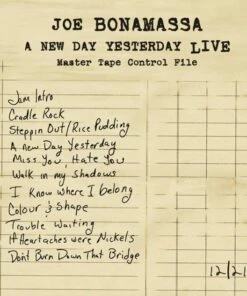 JOE BONAMASSA
A NEW DAY YESTERDAY LIVE
Master Tape Control File
Jam Intro
Cradle Rock
Steppin Out/Rice Pudding
A New Day Yesterday
Miss You, Hate You
Walk in my Shadows
I Know Where I Belong
Colour & Shape
Trouble Waiting
If Heartaches were Nickels
Don't Burn Down That Bridge
12/21